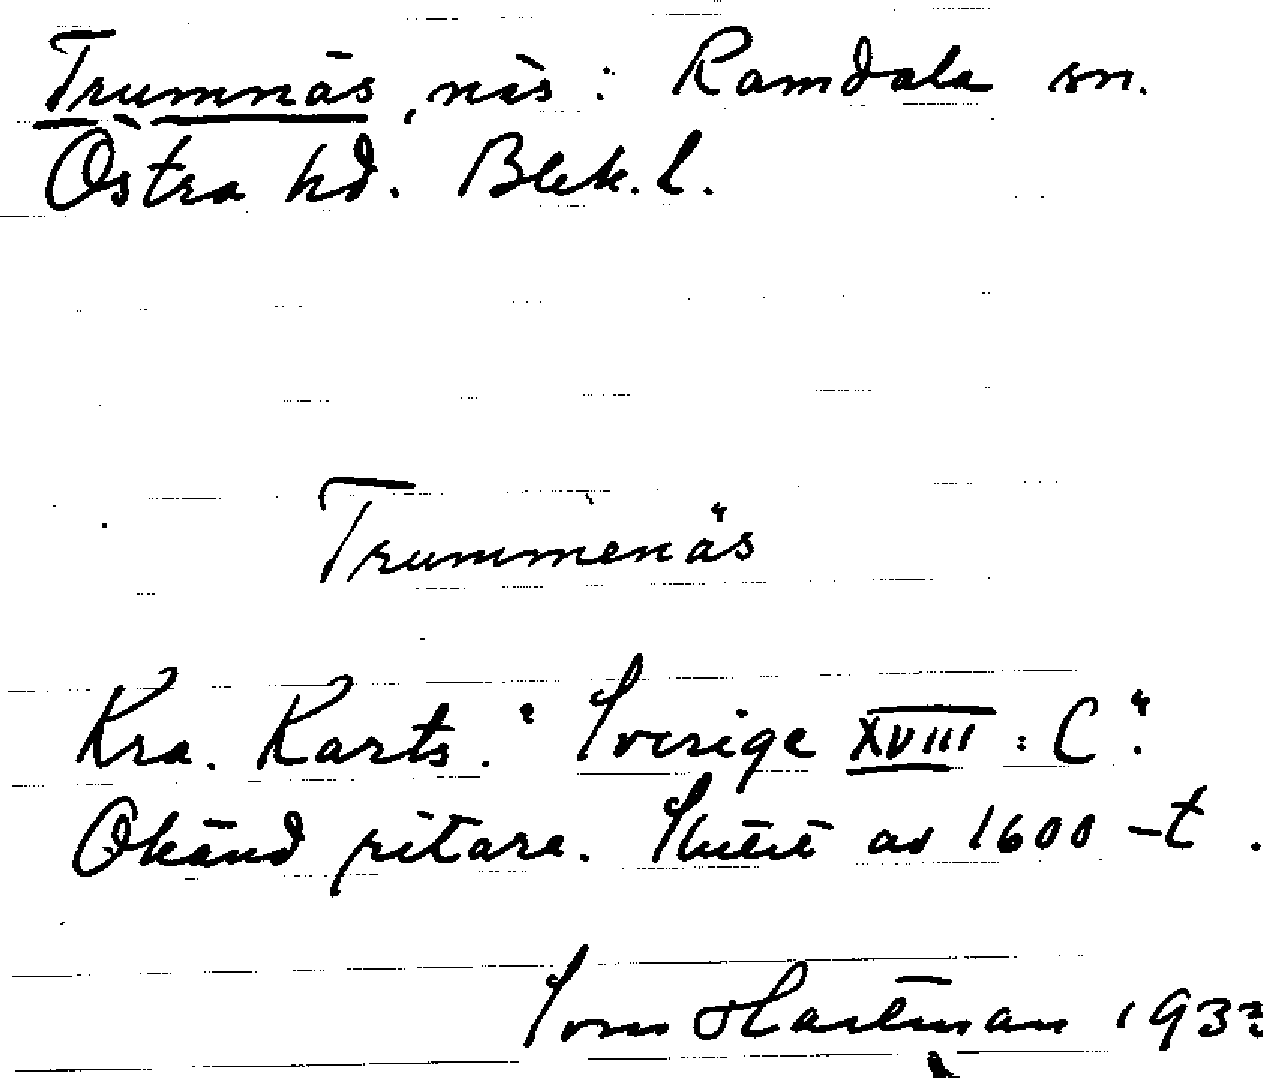 Trumnäs, näs: Ramdala sn.
Östra hd. Blek. l.
Trummenäs
Kra. Karts. "Sverige XVIII : C".
Okänd ritare. Slutet av 1600-t.
Sven Hartman 1933